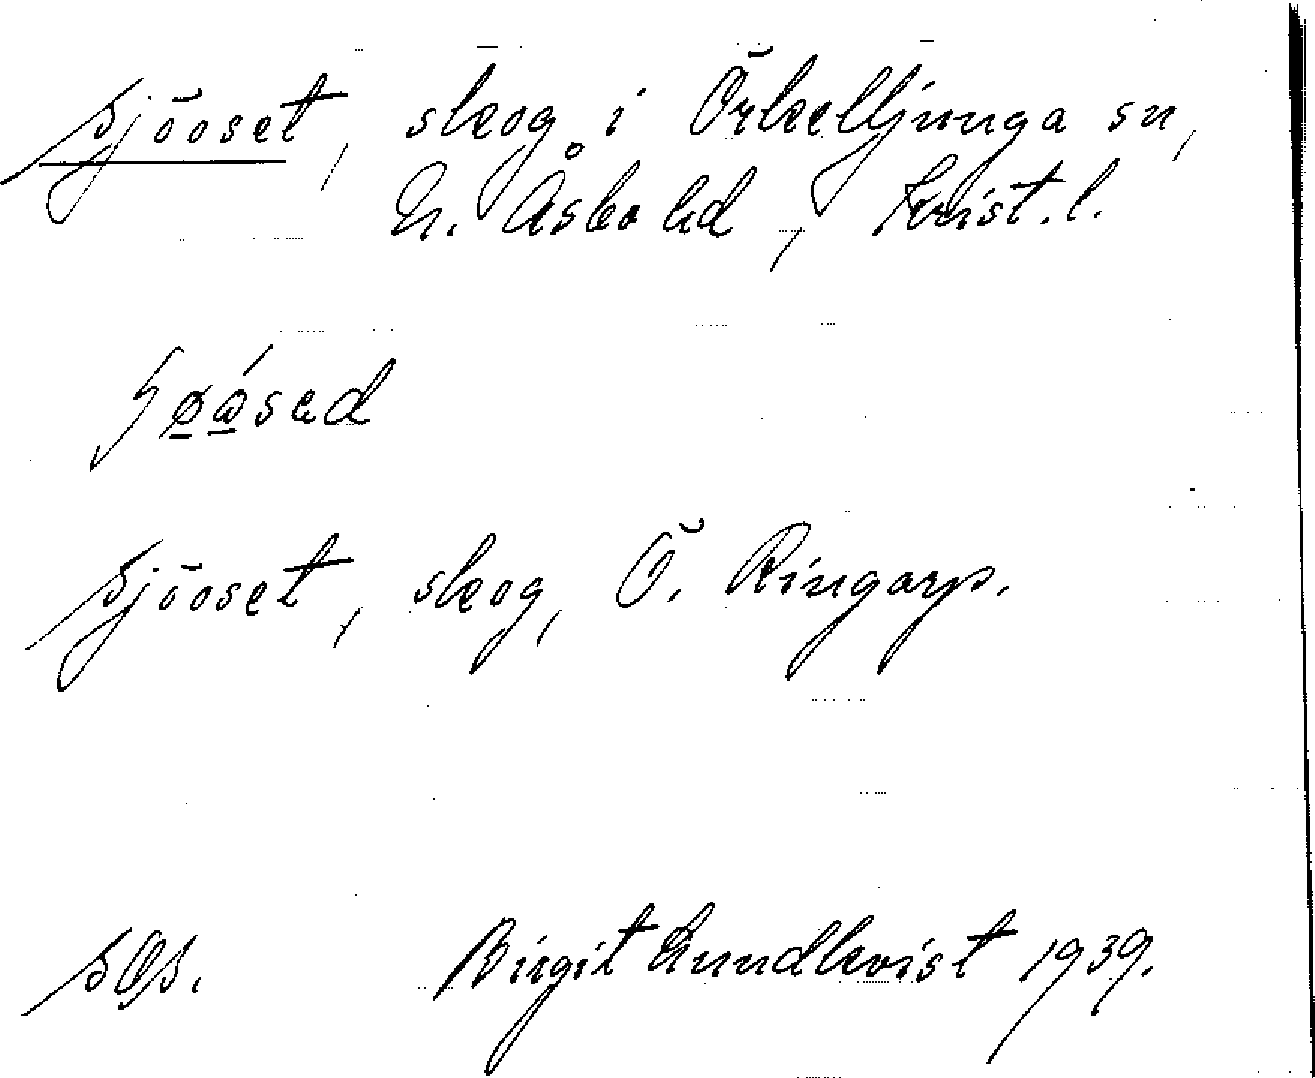 Sjöoset, skog i Örkelljunga sn,
N. Åsbo hd, Krist. l.
Sjöoset, skog, Ö. Ringarp.
SOS. Birgit Lundkvist 1939.